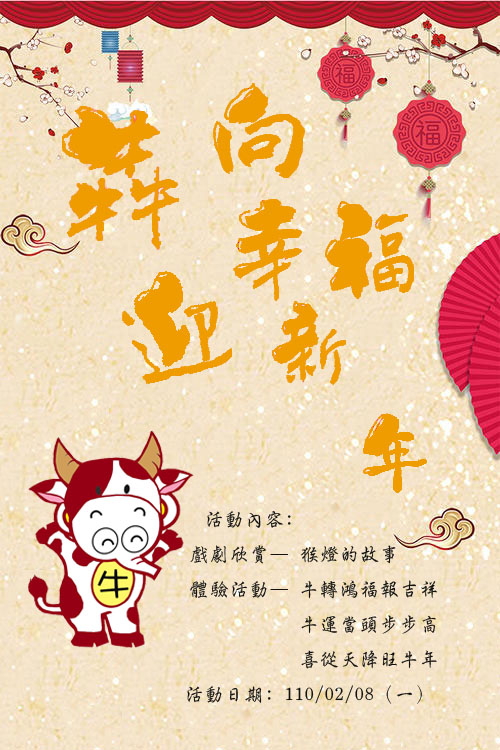 福
福
犇向
幸福
迎新
年
牛
活動內容：
戲劇欣賞— 猴燈的故事
體驗活動— 牛轉鴻福報吉祥
牛運當頭步步高
喜從天降旺牛年
活動日期：110/02/08（一）